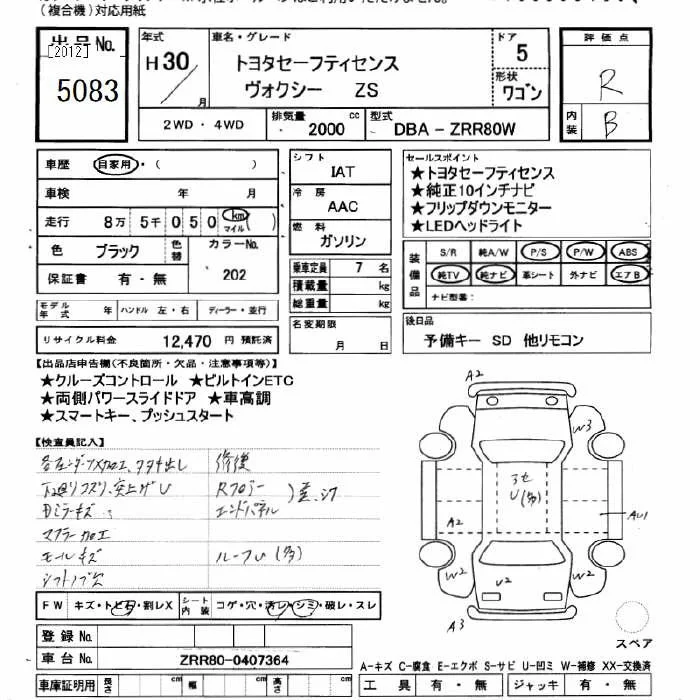 (複合機)対応用紙
出品No.
[2012]
5083
年式 車名・グレード ドア 評価点
H30 トヨタセーフティセンス 5
年 月 ヴォクシー ZS 形状 ワゴン R
2WD・4WD 排気量 2000 cc 型式 DBA-ZRR80W 内装 B
車歴 自家用・( )
車検 年 月
走行 8万 5千 0 5 0 km マイル ( )
色 ブラック 色替 カラーNo.
保証書 有・無 202
モデル年式 年 ハンドル 左・右 ディーラー・並行
リサイクル料金 12,470 円 預託済
シフト
IAT
冷房
AAC
燃料
ガソリン
乗車定員 7 名
積載量 kg
総重量 kg
名変期限
月 日
セールスポイント
★トヨタセーフティセンス
★純正10インチナビ
★フリップダウンモニター
★LEDヘッドライト
装備品 S/R 純A/W P/S P/W ABS
純TV 純ナビ 革シート 外ナビ エアB
ナビ型番:
後日品
予備キー SD 他リモコン
【出品店申告欄(不良箇所・欠品・注意事項等)】
★クルーズコントロール ★ビルトインETC
★両側パワースライドドア ★車高調
★スマートキー、プッシュスタート
【検査員記入】
修復
Rフロアー
エンドパネル
モールキズ ルーフU(多)
シフトノブ欠
FW キズ・トビ石・割レX シート内装 コゲ・穴・汚レ・シミ・破レ・スレ
登録No.
車台No. ZRR80-0407364
車庫証明用 長さ cm 幅 cm 高さ cm
A2
W3
U(多)
A2
AU1
W2
U2
W2
A3
スペア
A-キズ C-腐食 E-エクボ S-サビ U-凹ミ W-補修 XX-交換済
工具 有・無 ジャッキ 有・無